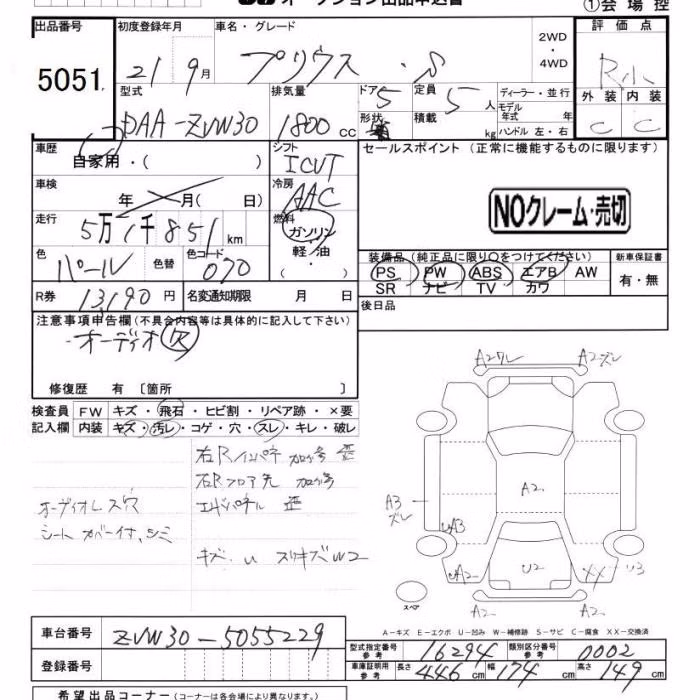 オークション出品申込書
①会場控
出品番号 初度登録年月 車名・グレード 2WD・4WD 評価点
5051 21 9月 プリウス・S R小
型式 排気量 ドア 5 定員 5人 ディーラー・並行 外装 内装
DAA-ZVW30 1800cc 形状 積載 kg モデル年式 年 ハンドル 左・右 C C
車歴 自家用・( ) シフト ICVT セールスポイント (正常に機能するものに限ります)
車検 年 月( 日) 冷房 AAC
NOクレーム・売切
走行 5万1千851km 燃料 ガソリン・軽油・( )
色 パール 色替 色コード 070
装備品(純正品に限り○をつけてください) 新車保証書
PS PW ABS エアB AW 有・無
SR ナビ TV カワ
R券 13,190円 名変通知期限 月 日 後日品
注意事項申告欄(不具合内容等は具体的に記入して下さい)
オーディオ欠
修復歴 有 〔箇所 〕
検査員 FW キズ・飛石・ヒビ割・リペア跡・×要
記入欄 内装 キズ・汚レ・コゲ・穴・スレ・キレ・破レ
右Rインパネ 加修 歪
右Rフロア先 加修
エンドパネル 歪
オーディオレス穴
シートカバー付、シミ
キズ・U スリキズW2
A2ワレ A2ズレ
A2
A3ズレ
UA3
UA2 U2 XX U3
A2 A2
スペア
A-キズ E-エクボ U-凹み W-補修跡 S-サビ C-腐食 XX-交換済
車台番号 ZVW30-5055229
型式指定番号 参考 16294 類別区分番号 参考 0002
登録番号
車庫証明用 参考 長さ 446cm 幅 174cm 高さ 149cm
希望出品コーナー(コーナーは各会場により異なります。)